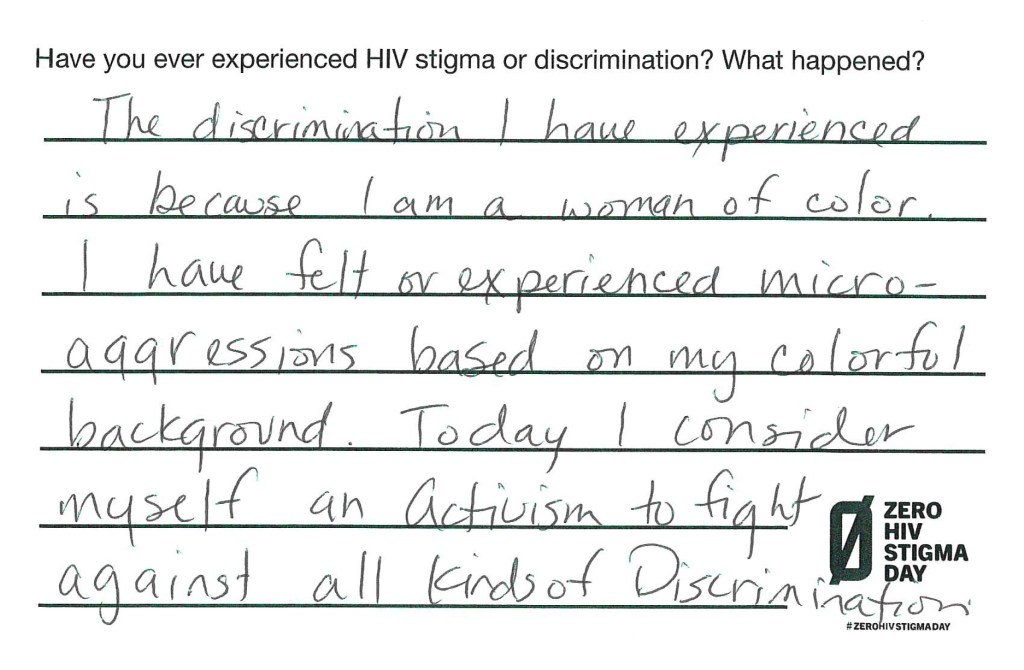 Have you ever experienced HIV stigma or discrimination? What happened?
The discrimination I have experienced
is because I am a woman of color.
I have felt or experienced micro-
aggressions based on my colorful
background. Today I consider
myself an Activism to fight
against all kinds of Discrimination
ZERO
HIV
STIGMA
DAY
#ZEROHIVSTIGMADAY